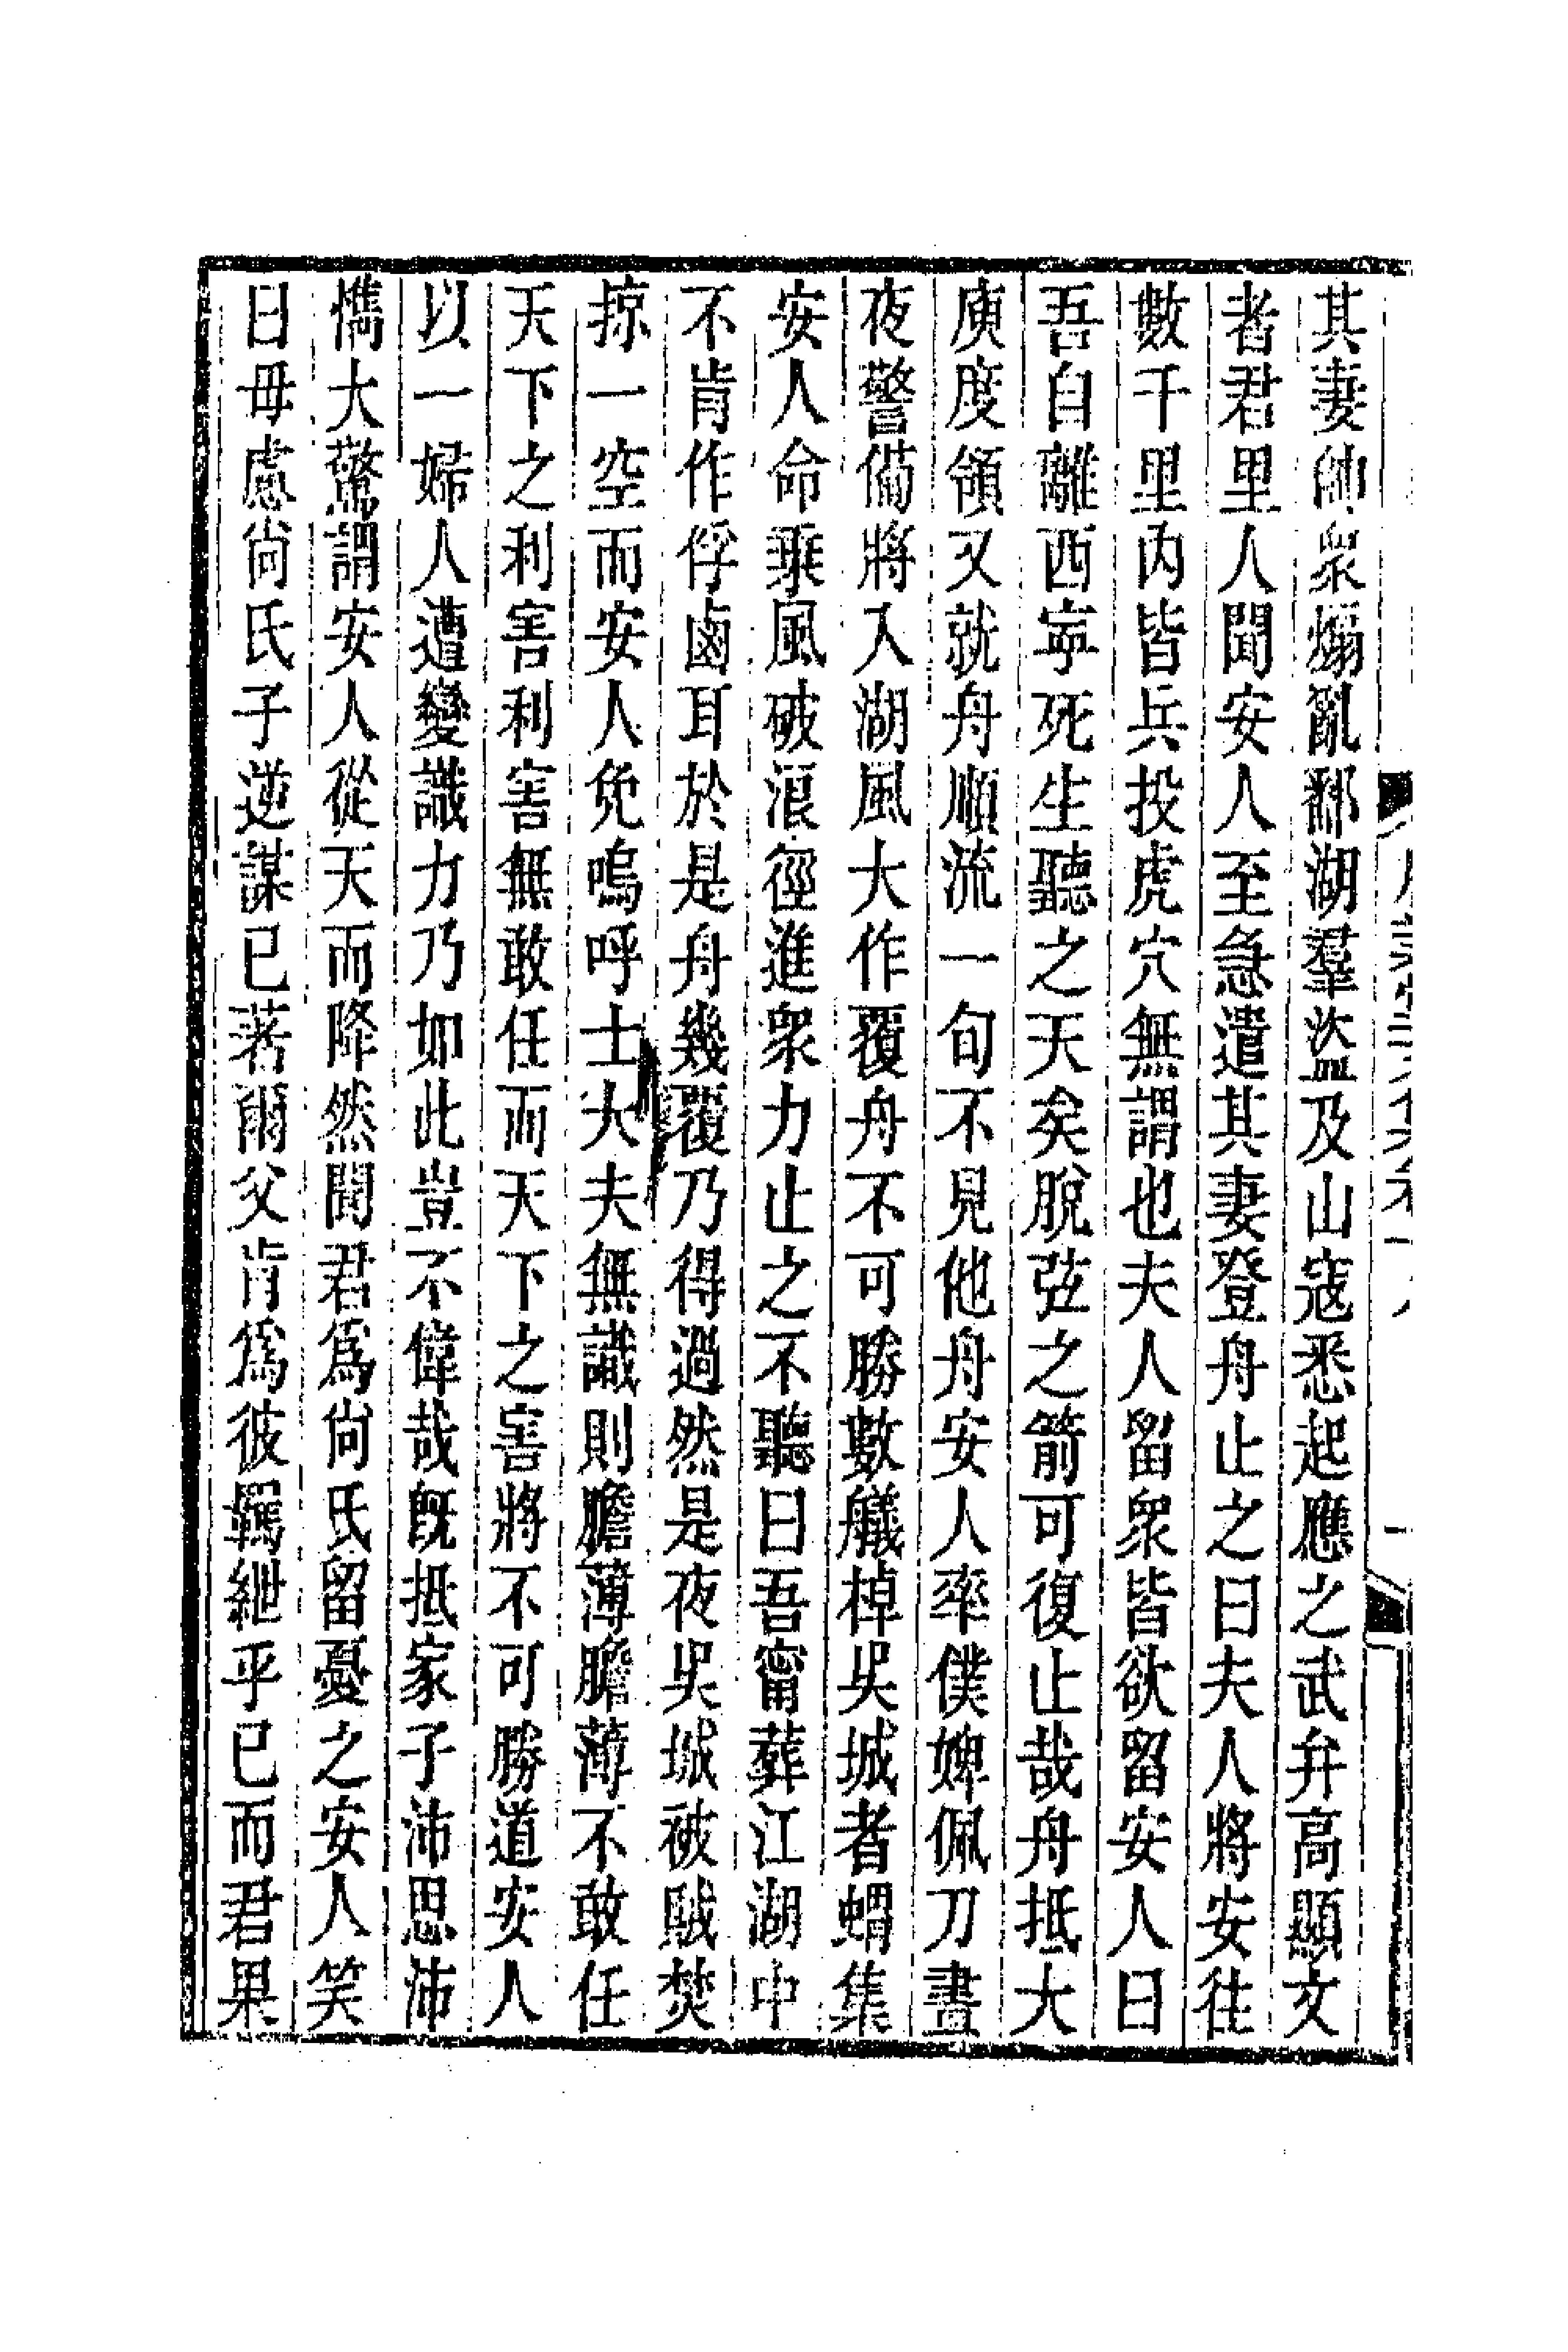 其妻帥衆煽亂鄱湖羣盜及山寇悉起應之武弁高顯文
者君里人聞安人至急遣其妻登舟止之曰夫人將安往
數千里內皆兵投虎穴無謂也夫人留衆皆欲留安人曰
吾自離西寧死生聽之天矣脫弦之箭可復止哉舟抵大
庾度領又就舟順流一旬不見他舟安人率僕婢佩刀晝
夜警備將入湖風大作覆舟不可勝數艤棹吳城者蝟集
安人命乘風破浪徑進衆力止之不聽曰吾甯葬江湖中
不肯作俘鹵耳於是舟幾覆乃得過然是夜吳城被賊焚
掠一空而安人免嗚呼士大夫無識則膽薄膽薄不敢任
天下之利害利害無敢任而天下之害將不可勝道安人
以一婦人遭變識力乃如此豈不偉哉旣抵家子沛思沛
懏大驚謂安人從天而降然聞君爲尙氏留憂之安人笑
曰毋慮尙氏子逆謀已著爾父肯爲彼羈紲乎已而君果